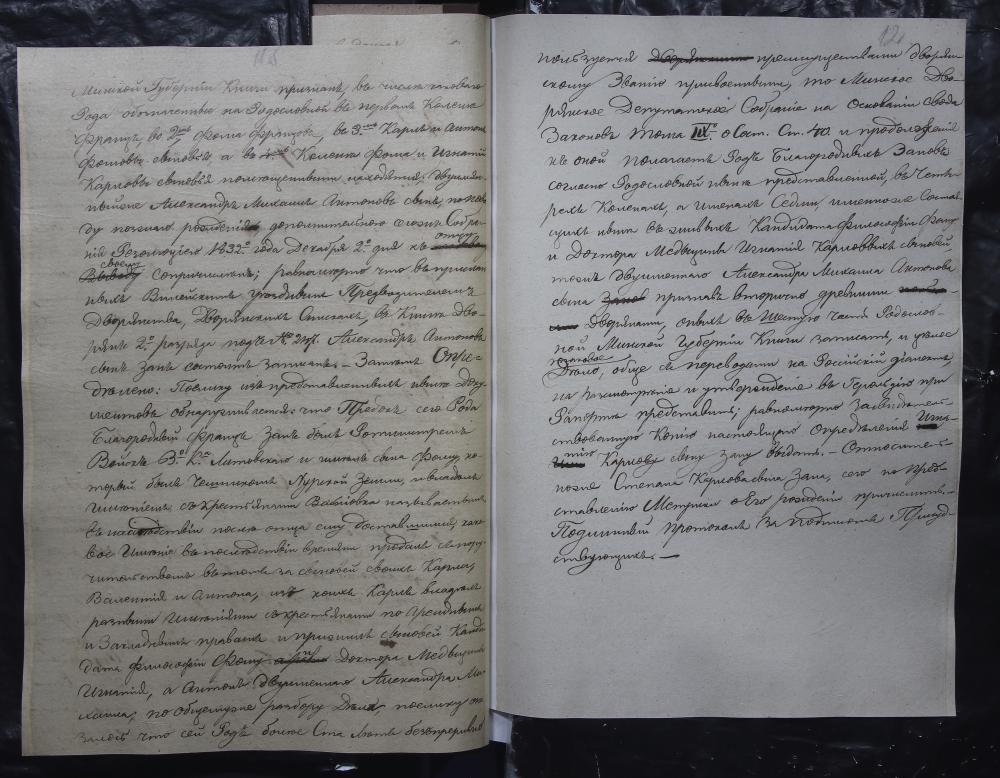 Минской Губернии Книги признан, въ числѣ таковаго
Рода обозначенные на Родословной въ первомъ Коленѣ
Францъ, во 2мъ Фома Францовъ, въ 3мъ Карлъ и Антонъ
Фомовы сыновья а въ Коленѣ Фома и Игнатій
Карловы сыновья помещенными находятся, двуимян-
ный же Александръ Михаилъ Антоновъ сынъ, по
поводу позняго рожденія, дополнительною сего Собра-
нія Резолюціею 1832го года Декабря 2го дня къ отцу
своему сопричисленъ; равномѣрно что въ присланн
ныхъ Вилейскимъ Уезднымъ Предводителемъ
Дворянства, Дворянскихъ Спискахъ, въ Книгѣ Дво-
рянъ 2го разряда подъ № Александръ Антоновъ
сынъ Занъ состоитъ записанъ. – Затѣмъ Опре-
дѣлено: Поелику изъ представленныхъ нынѣ Доку
ментовъ обнаруживается: что Предокъ сего Рода
Благородный Францъ Занъ былъ Ротмистромъ
Войскъ В. К. Литовскаго и имѣлъ сына Фому, ко-
торый былъ Чешникомъ Земли, и владѣлъ
имѣніемъ съ Крестьянами называемымъ
въ наслѣдствіи послѣ отца ему доставшимся, како
вое Имѣніе въ последствіи времяни продалъ съ пору
чительствомъ въ томъ за сыновей своихъ Карла,
Валентія и Антона, изъ коихъ Карлъ владѣлъ
разными имѣніями съ крестьянами по Арендовнымъ
и Закладнымъ правамъ и прижилъ Сыновей Канди
дата Философіи Фому и Доктора Медицины
Игнатія, а Антонъ двуименнаго Александра Ми-
хаила; по общему же разбору Дѣла, поелику ока
залось что сей Родъ болѣе Ста Лѣтъ безпрерывно
120
пользуется преимуществами дворян
скому Званію присвоенными, то Минское Дво-
рянское Депутатское Собраніе на Основаніи Свода
Законовъ Тома IX. о Сост. Ст. 40. и продолженій
къ оной полагаетъ Родъ Благородныхъ Зановъ
согласно Родословной нынѣ представленной, въ Четы-
рехъ Коленахъ, а имянахъ Седми, именно же Состоя-
щихъ нынѣ въ живыхъ Кандидата Философіи Фому
и Доктора Медицины Игнатія Карловыхъ сыновей
тожъ двуименнаго Александра Михаила Антонова
сына признавъ вторично древними
Дворянами, оныхъ въ Шестую часть Родослов-
ной Минской Губерніи Книги записать, и
таковое Дѣло, обще съ переводами на Россійскій діалектъ,
на разсмотрѣніе и утвержденіе въ Герольдію при
Рапортѣ представить; равномѣрно Засвидетель-
ствованную Копію настоящаго Опредѣленія Игна-
тію Карлову сыну Зану выдать. – Относитель-
но же Степана Карловаго сына Зана, сего по пред-
ставленію Метрики о Его рожденіи причислить. –
Подлинный Протоколъ За Подписомъ Присут-
ствующихъ. –